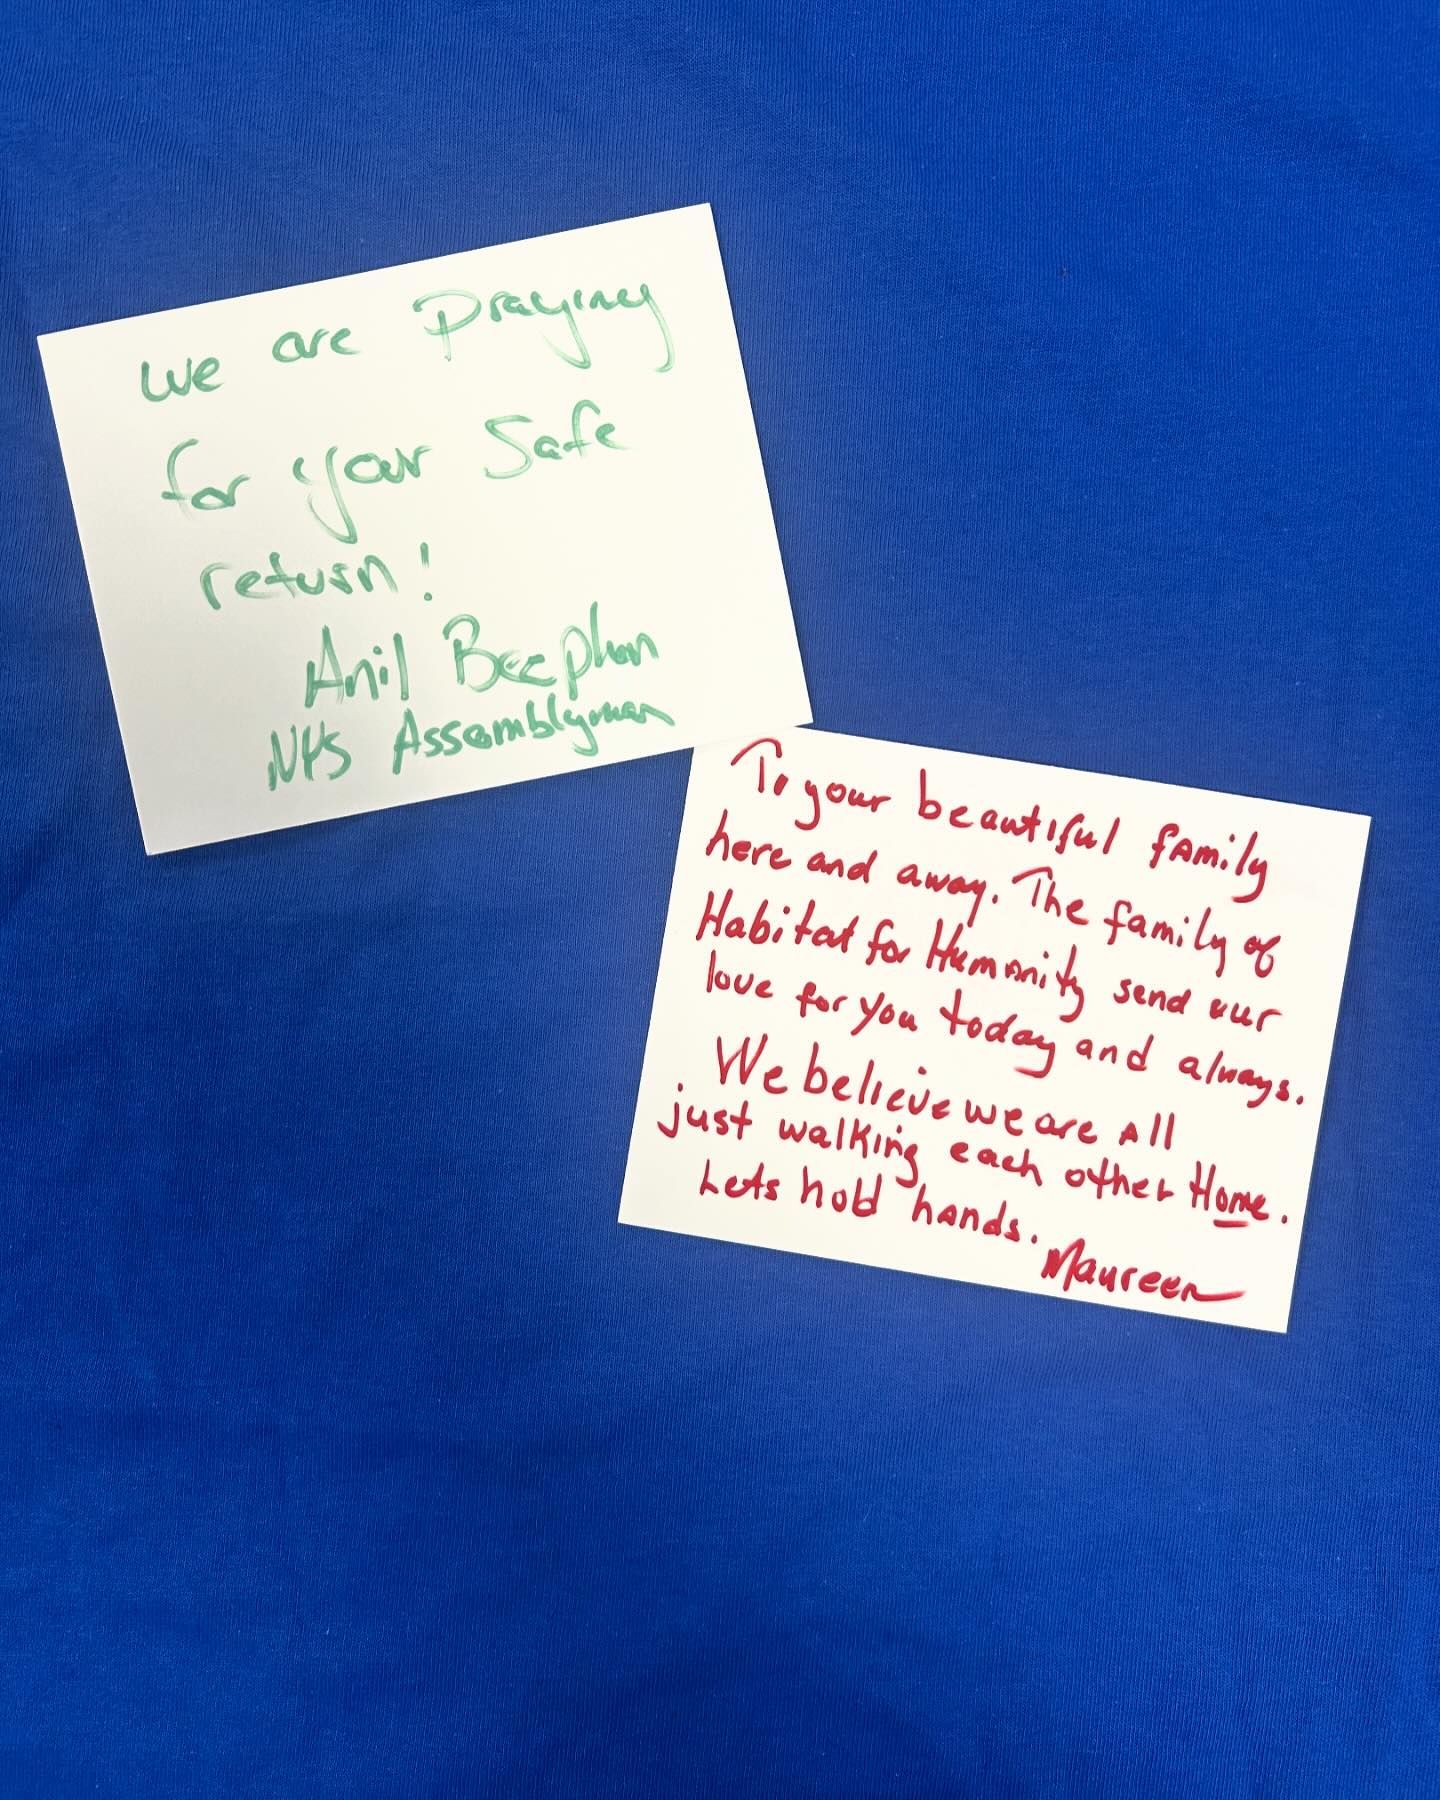 we are praying
for your Safe
return!
Anil Beephan
NYS Assemblyman
To your beautiful family
here and away. The family of
Habitat for Humanity send our
love for you today and always.
We believe we are all
just walking each other Home.
Lets hold hands.
Maureen